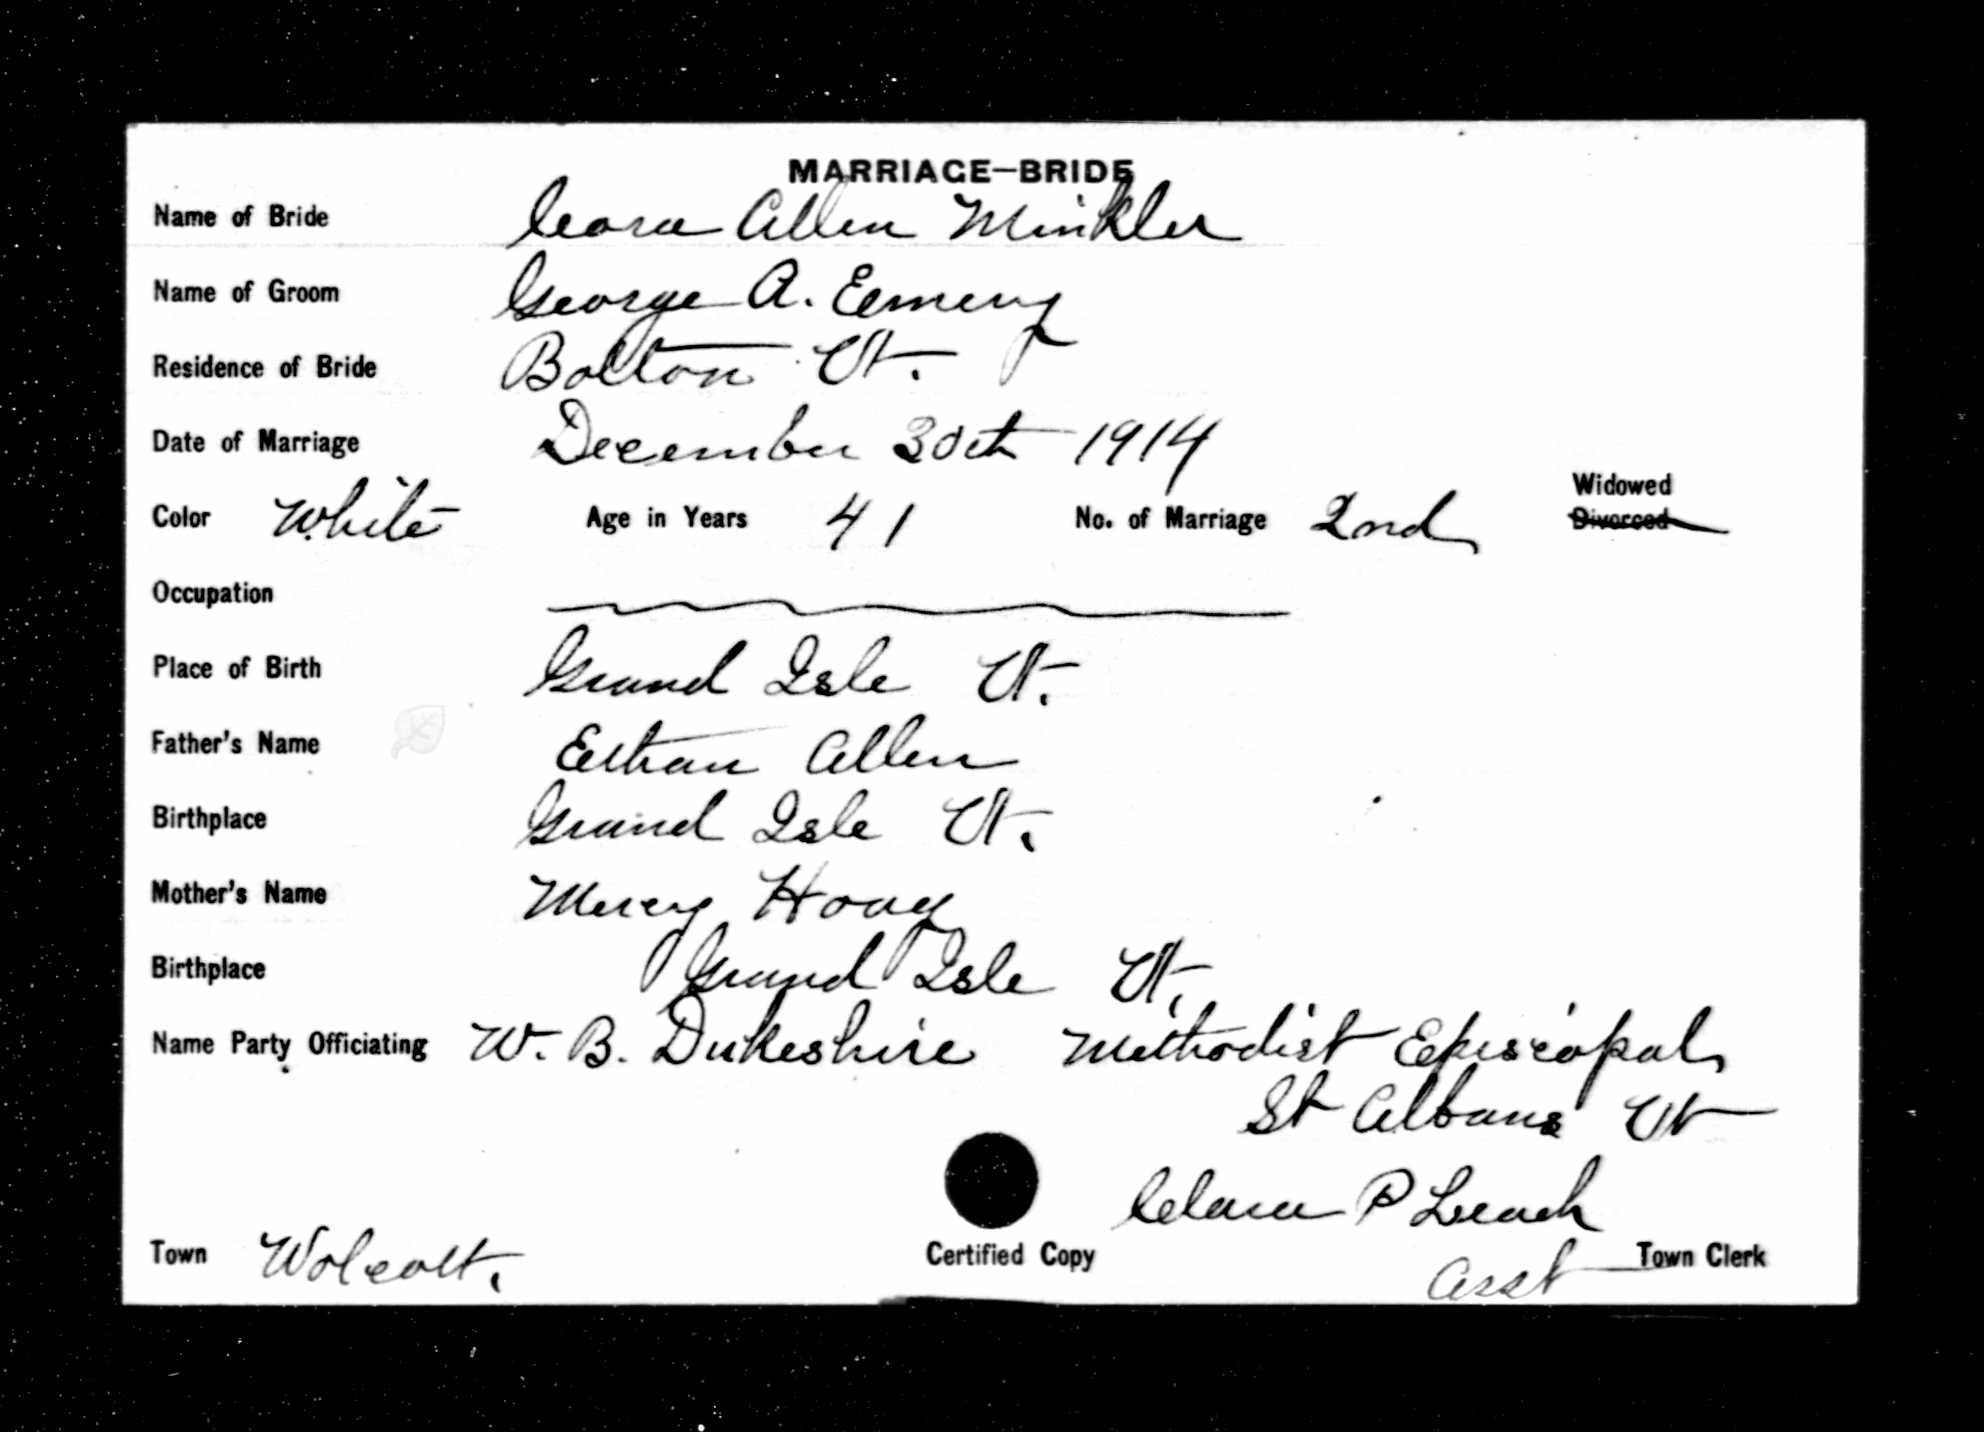 MARRIAGE—BRIDE
Name of Bride Cora Allen Minkler
Name of Groom George A. Emery
Residence of Bride Bolton Vt.
Date of Marriage December 30th 1914
Widowed
Color White Age in Years 41 No. of Marriage 2nd Divorced
Occupation
Place of Birth Grand Isle Vt.
Father's Name Ethan Allen
Birthplace Grand Isle Vt.
Mother's Name Mercy Hoag
Birthplace Grand Isle Vt.
Name Party Officiating W. B. Dukeshire Methodist Episcopal
St Albans Vt
Clara P Leach
Town Wolcott. Certified Copy Asst Town Clerk